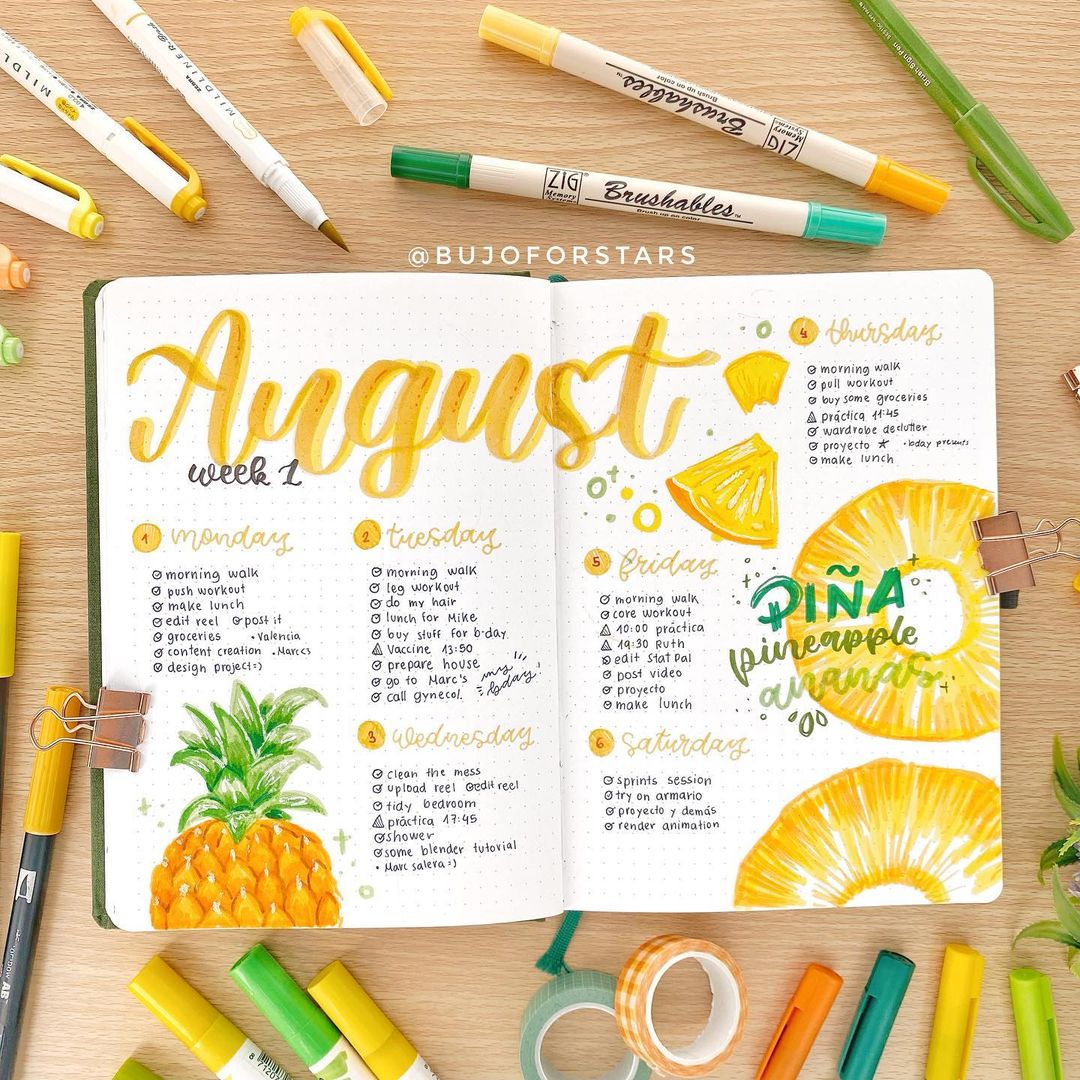 MILDL
ZEBRA
MILDLINER Brush
ZIG
Memory System
Brushables™
Brush up on color
ZIG
Memory System
Brushables™
Brush up on color
Brush Sign Pen
@BUJOFORSTARS
August
week 1
1 monday
morning walk
push workout
make lunch
edit reel post it
groceries • Valencia
content creation • Marcs
design project=)
2 tuesday
morning walk
leg workout
do my hair
lunch for Mike
buy stuff for b-day
vaccine 13:50
prepare house
go to Marc's
call gynecol.
my bday!
3 wednesday
clean the mess
upload reel edit reel
tidy bedroom
práctica 17:45
shower
some blender tutorial
• Marc salera=)
4 thursday
morning walk
pull workout
buy some groceries
práctica 11:45
wardrobe declutter
proyecto ★ • bday presents
make lunch
5 friday
morning walk
core workout
10:00 práctica
19:30 Ruth
edit Stat Pal
post video
proyecto
make lunch
PIÑA
pineapple
ananas
6 saturday
sprints session
try on armario
proyecto y demás
render animation
AB